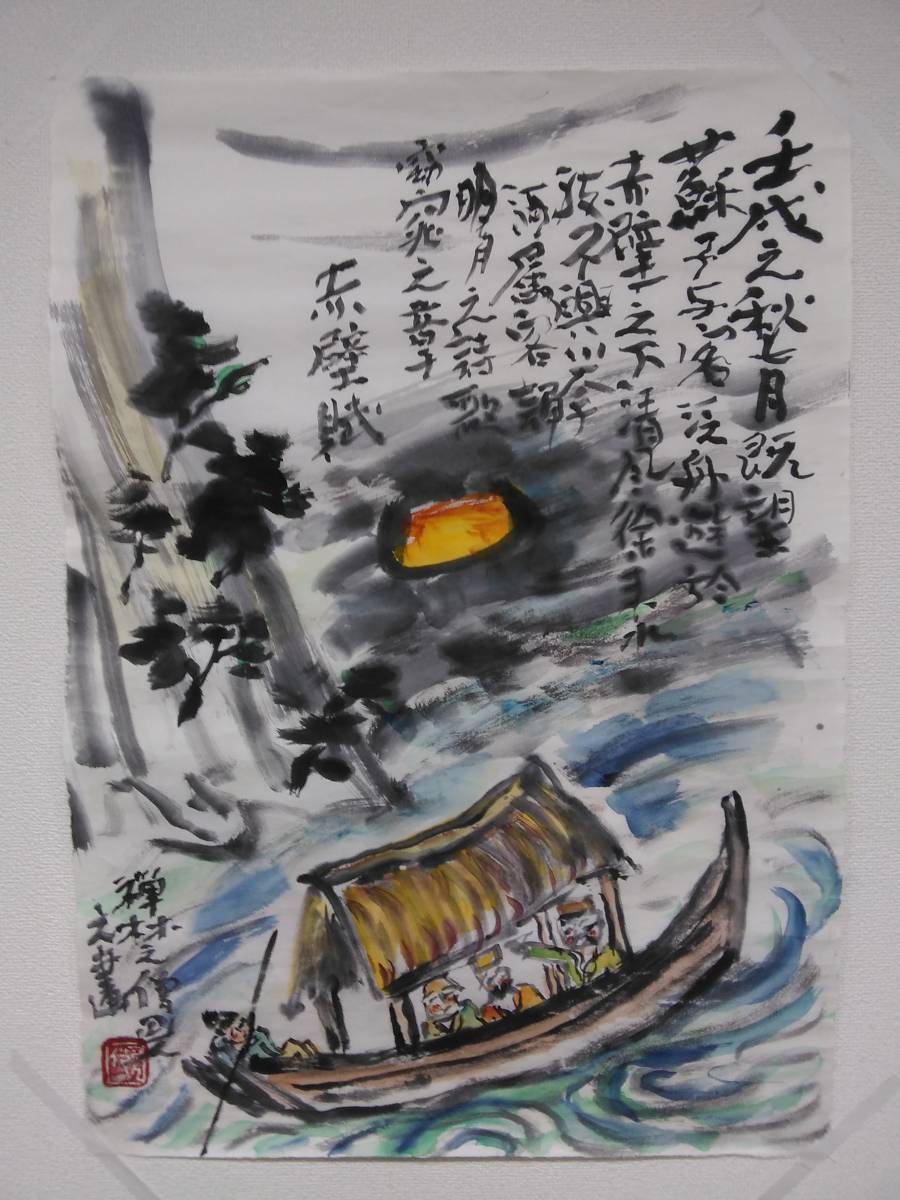 壬戌之秋七月既望
蘇子与客泛舟遊於
赤壁之下清風徐来水
波不興挙
酒属客誦
明月之詩歌
窈窕之章
赤壁賦
禅林之僧